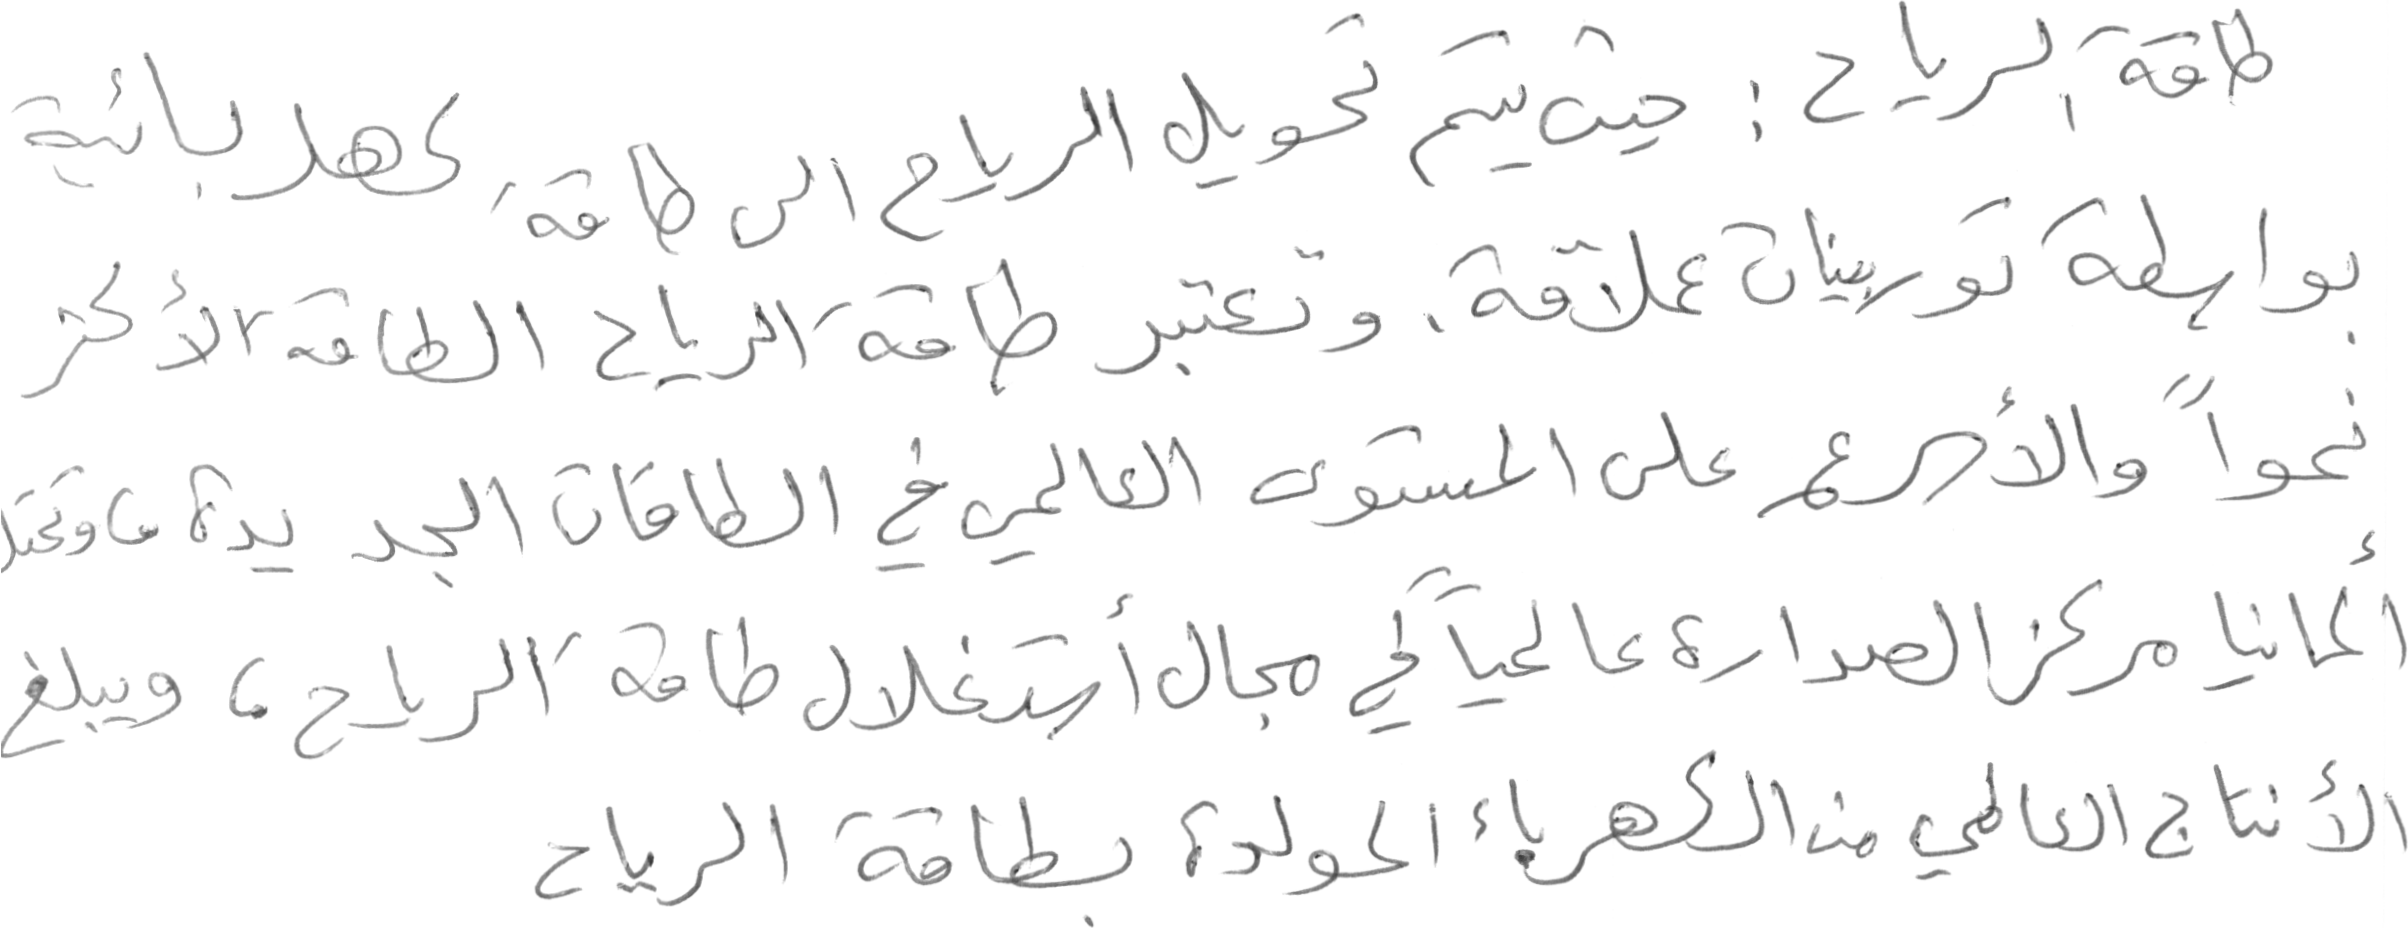 طاقة الرياح : حيث يتم تحويل الرياح الى طاقة كهربائية
بواسطة توربينات عملاقة، وتعتبر طاقة الرياح الطاقة الأكثر
نمواً والأسرع على المستوى العالمي في الطاقات الجديدة، وتحتل
ألمانيا مركز الصدارة عالمياً في مجال أستغلال طاقة الرياح، ويبلغ
الأنتاج العالمي من الكهرباء المولدة بطاقة الرياح